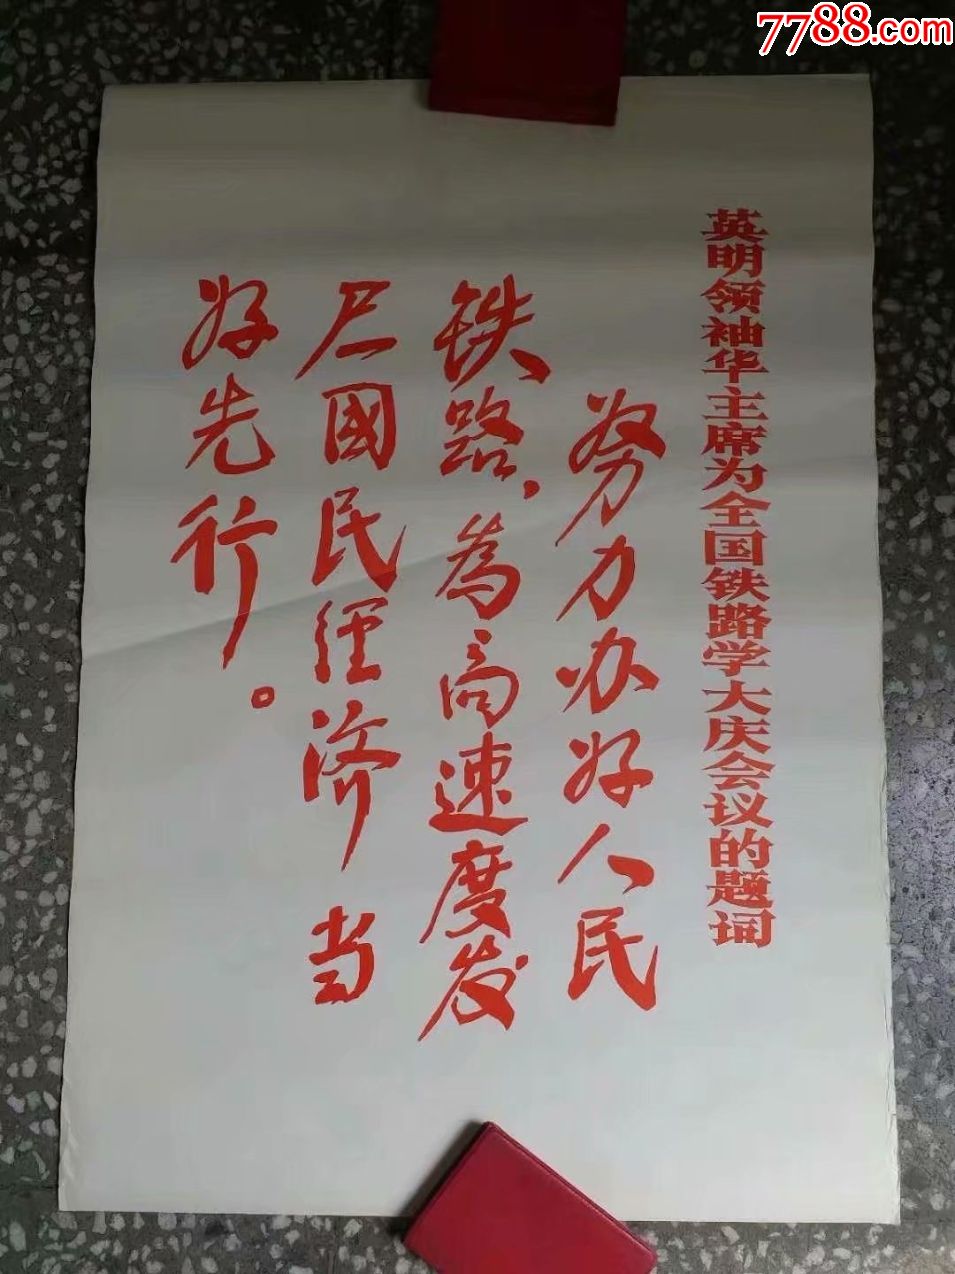 7788.com
英明领袖华主席为全国铁路学大庆会议的题词
努力办好人民
铁路，为高速度发
展國民经济当
好先行。